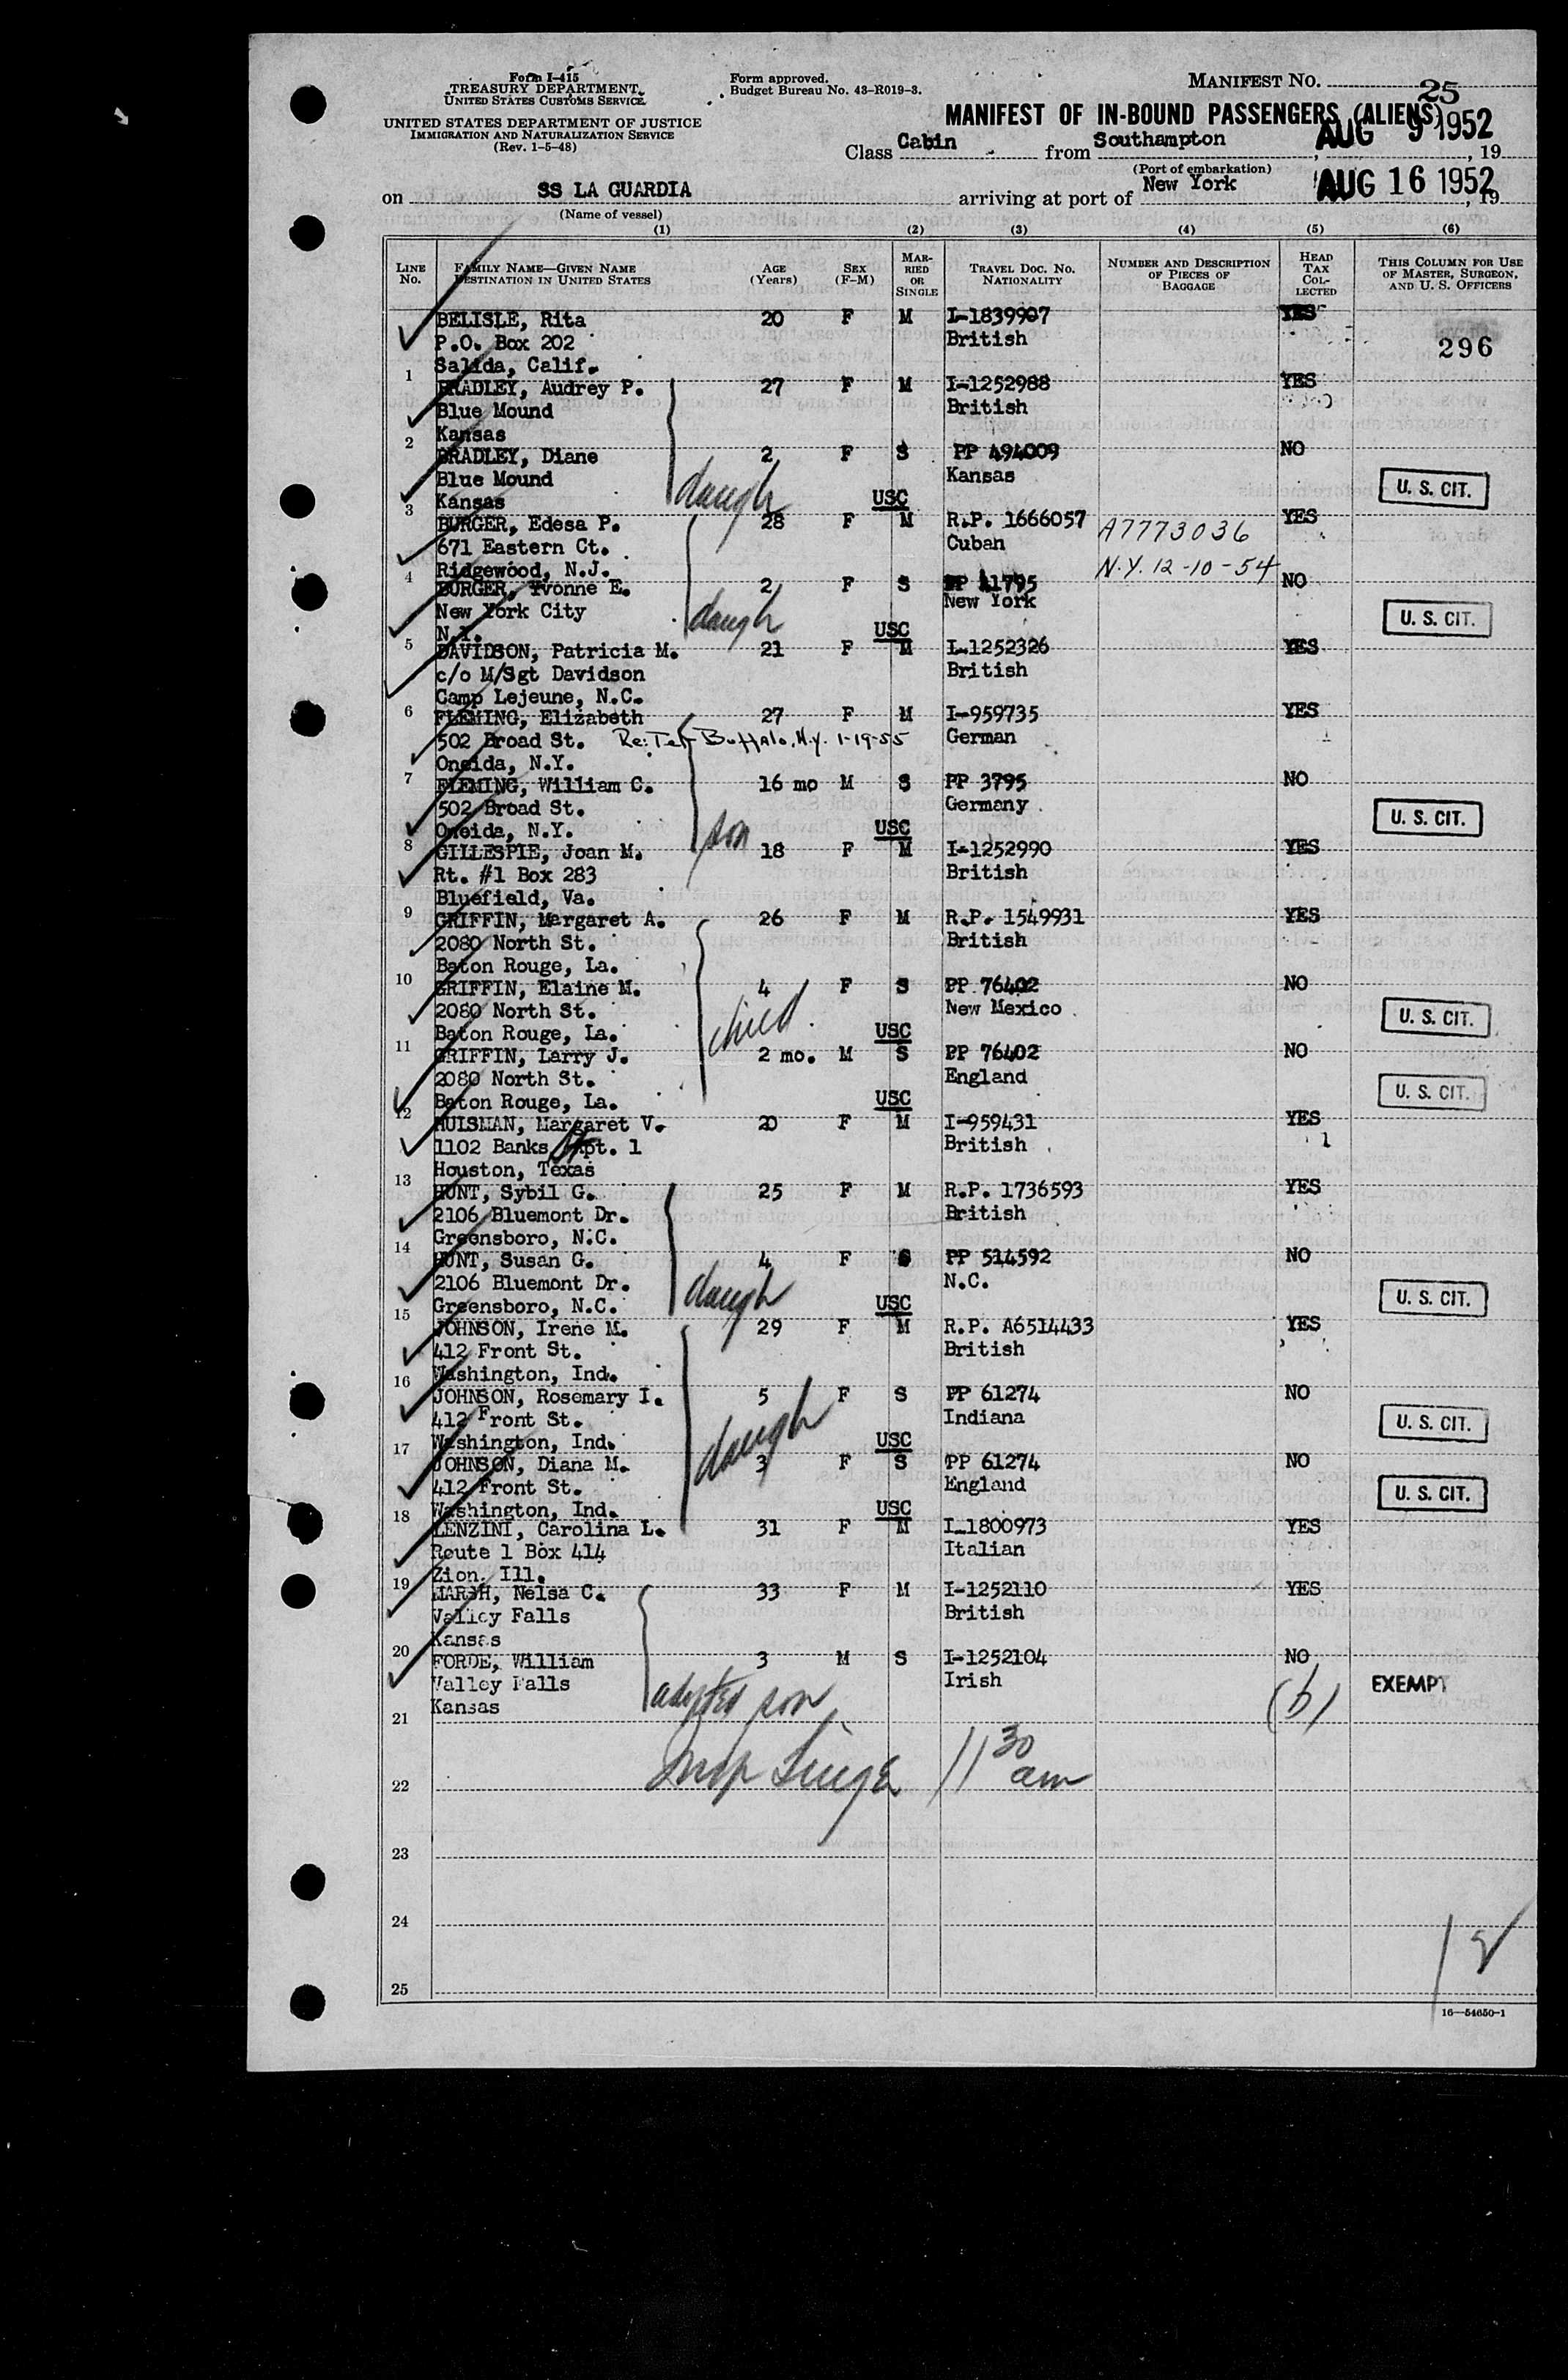 Form I-415
TREASURY DEPARTMENT
UNITED STATES CUSTOMS SERVICE
UNITED STATES DEPARTMENT OF JUSTICE
IMMIGRATION AND NATURALIZATION SERVICE
(Rev. 1-5-48)
Form approved.
Budget Bureau No. 43-R019-3.
MANIFEST NO. 25
MANIFEST OF IN-BOUND PASSENGERS (ALIENS)
Class Cabin from Southampton, AUG 9 1952, 19
(Port of embarkation)
on SS LA GUARDIA arriving at port of New York AUG 16 1952, 19
(Name of vessel)
(1) (2) (3) (4) (5) (6)
LINE No. FAMILY NAME—GIVEN NAME DESTINATION IN UNITED STATES AGE (Years) SEX (F-M) MARRIED OR SINGLE TRAVEL DOC. NO. NATIONALITY NUMBER AND DESCRIPTION OF PIECES OF BAGGAGE HEAD TAX COLLECTED THIS COLUMN FOR USE OF MASTER, SURGEON, AND U. S. OFFICERS
BELISLE, Rita 20 F M I-1839907 YES
P.O. Box 202 British 296
1 Salida, Calif.
BRADLEY, Audrey P. 27 F M I-1252988 YES
Blue Mound British
2 Kansas
BRADLEY, Diane 2 F S PP 494009 NO
Blue Mound Kansas U. S. CIT.
3 Kansas daugh USC
BURGER, Edesa P. 28 F M R.P. 1666057 A7773036 YES
671 Eastern Ct. Cuban
4 Ridgewood, N.J. N.Y. 12-10-54
BURGER, Yvonne E. 2 F S PP 11795 NO
New York City New York U. S. CIT.
5 N.Y. daugh USC
DAVIDSON, Patricia M. 21 F M I-1252326 YES
c/o M/Sgt Davidson British
6 Camp Lejeune, N.C.
FLEMING, Elizabeth 27 F M I-959735 YES
502 Broad St. Re: Tel Buffalo, N.Y. 1-19-55 German
7 Oneida, N.Y.
FLEMING, William C. 16 mo M S PP 3795 NO
502 Broad St. Germany U. S. CIT.
8 Oneida, N.Y. son USC
GILLESPIE, Joan M. 18 F M I-1252990 YES
Rt. #1 Box 283 British
9 Bluefield, Va.
GRIFFIN, Margaret A. 26 F M R.P. 1549931 YES
2080 North St. British
10 Baton Rouge, La.
GRIFFIN, Elaine M. 4 F S PP 76402 NO
2080 North St. New Mexico U. S. CIT.
11 Baton Rouge, La. child. USC
GRIFFIN, Larry J. 2 mo. M S PP 76402 NO
2080 North St. England U. S. CIT.
12 Baton Rouge, La. USC
HUISMAN, Margaret V. 20 F M I-959431 YES
1102 Banks Apt. 1 British 1
13 Houston, Texas
HUNT, Sybil G. 25 F M R.P. 1736593 YES
2106 Bluemont Dr. British
14 Greensboro, N.C.
HUNT, Susan G. 4 F S PP 514592 NO
2106 Bluemont Dr. N.C. U. S. CIT.
15 Greensboro, N.C. daugh USC
JOHNSON, Irene M. 29 F M R.P. A6514433 YES
412 Front St. British
16 Washington, Ind.
JOHNSON, Rosemary I. 5 F S PP 61274 NO
412 Front St. Indiana U. S. CIT.
17 Washington, Ind. daugh USC
JOHNSON, Diana M. 3 F S PP 61274 NO
412 Front St. England U. S. CIT.
18 Washington, Ind. USC
LENZINI, Carolina L. 31 F M I-1800973 YES
Route 1 Box 414 Italian
19 Zion, Ill.
MARSH, Nelsa C. 33 F M I-1252110 YES
Valley Falls British
20 Kansas
FORDE, William 3 M S I-1252104 NO
Valley Falls Irish (b) EXEMPT
21 Kansas adopted son
22 11 30 am
23
24
25
16—54650-1